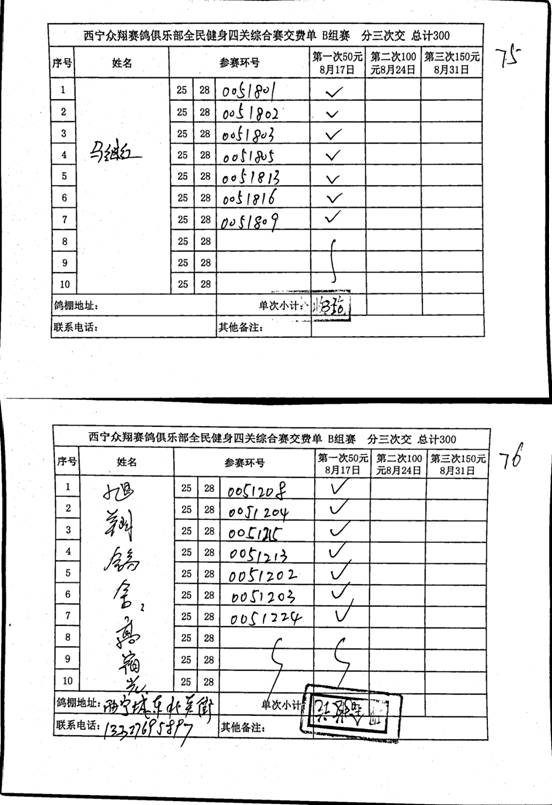 75
西宁众翔赛鸽俱乐部全民健身四关综合赛交费单 B组赛 分三次交 总计300
序号 姓名 参赛环号 第一次50元 8月17日 第二次100元8月24日 第三次150元 8月31日
1 25 28 0051801 ✓
2 25 28 0051802 ✓
3 25 28 0051803 ✓
4 马继红 25 28 0051805 ✓
5 25 28 0051813 ✓
6 25 28 0051816 ✓
7 25 28 0051809 ✓
8 25 28
9 25 28
10 25 28
鸽棚地址: 单次小计:
联系电话: 其他备注:
76
西宁众翔赛鸽俱乐部全民健身四关综合赛交费单 B组赛 分三次交 总计300
序号 姓名 参赛环号 第一次50元 8月17日 第二次100元8月24日 第三次150元 8月31日
1 旭 25 28 0051208 ✓
2 翔 25 28 0051204 ✓
3 25 28 0051215 ✓
4 鸽 25 28 0051213 ✓
5 舍 25 28 0051202 ✓
6 25 28 0051203 ✓
7 高 25 28 0051224 ✓
8 25 28
9 25 28
10 25 28
鸽棚地址: 西宁城东北关街 单次小计:
联系电话: 13327695897 其他备注: